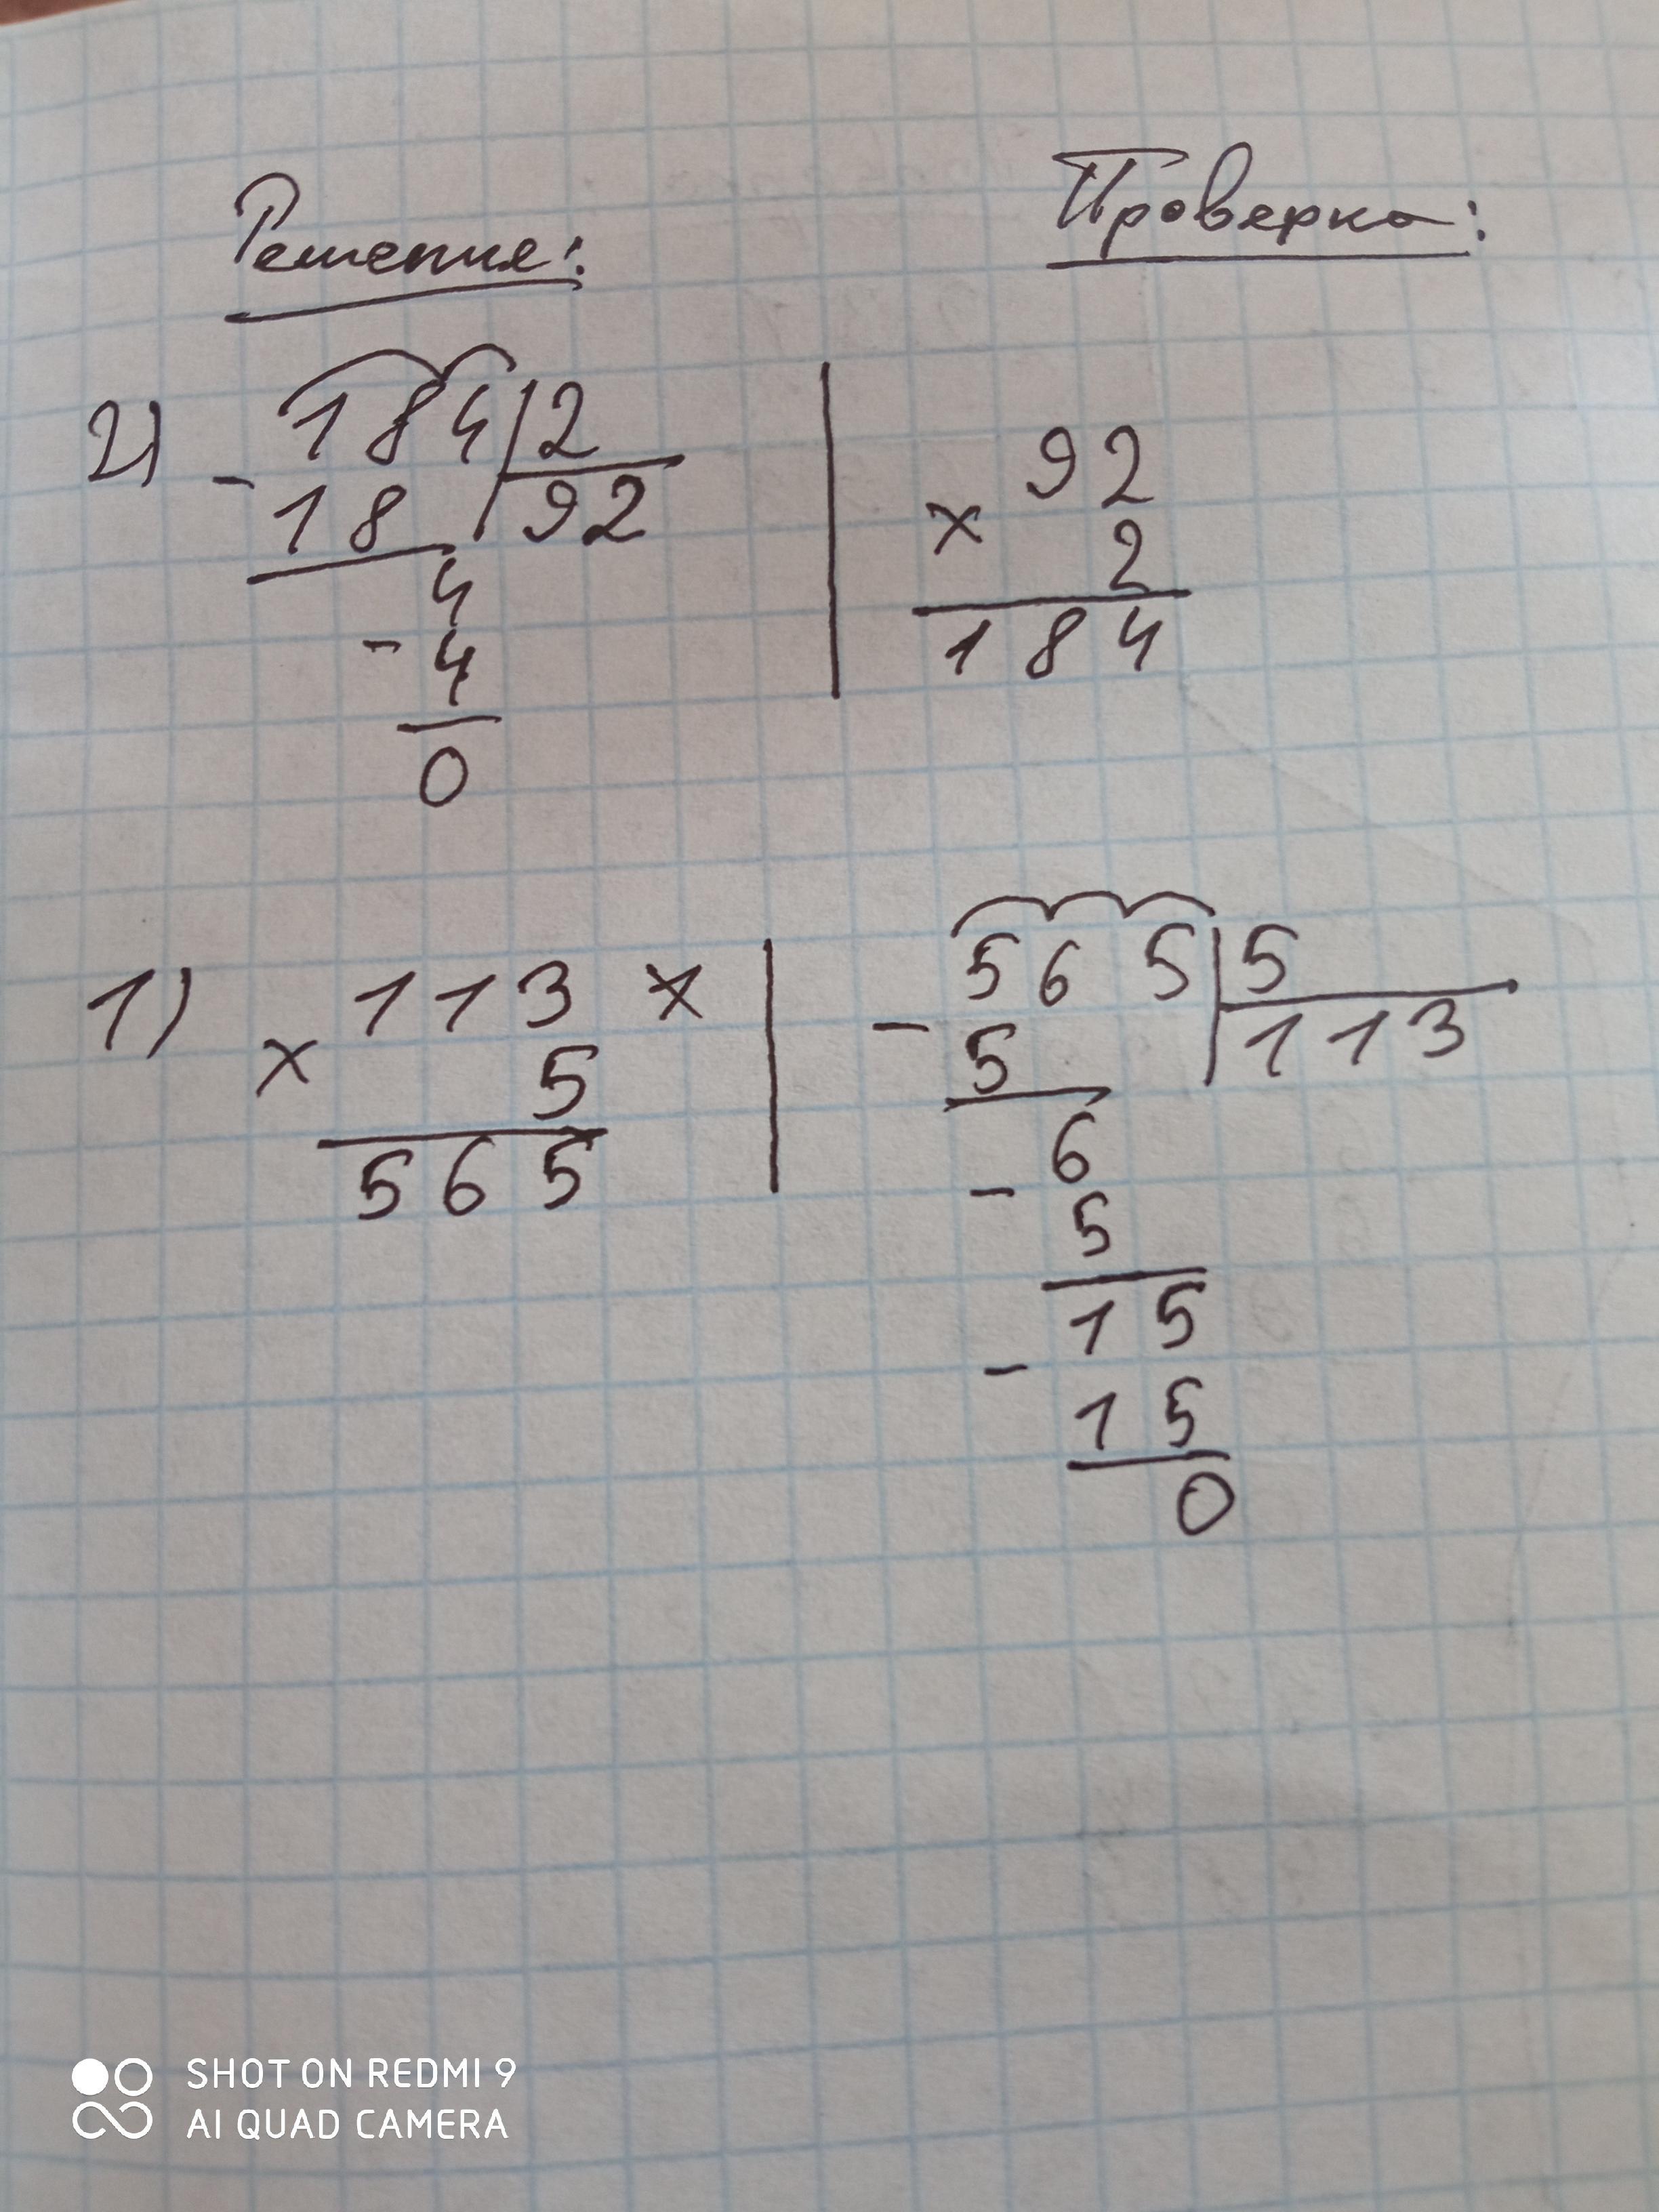 Решения: Проверка:
2) - 184 | 2 | 92
18 | 92 × 2
4 184
- 4
0
1) 113 × | - 565 | 5
× 5 5 | 113
565 6
- 5
15
- 15
0
SHOT ON REDMI 9
AI QUAD CAMERA